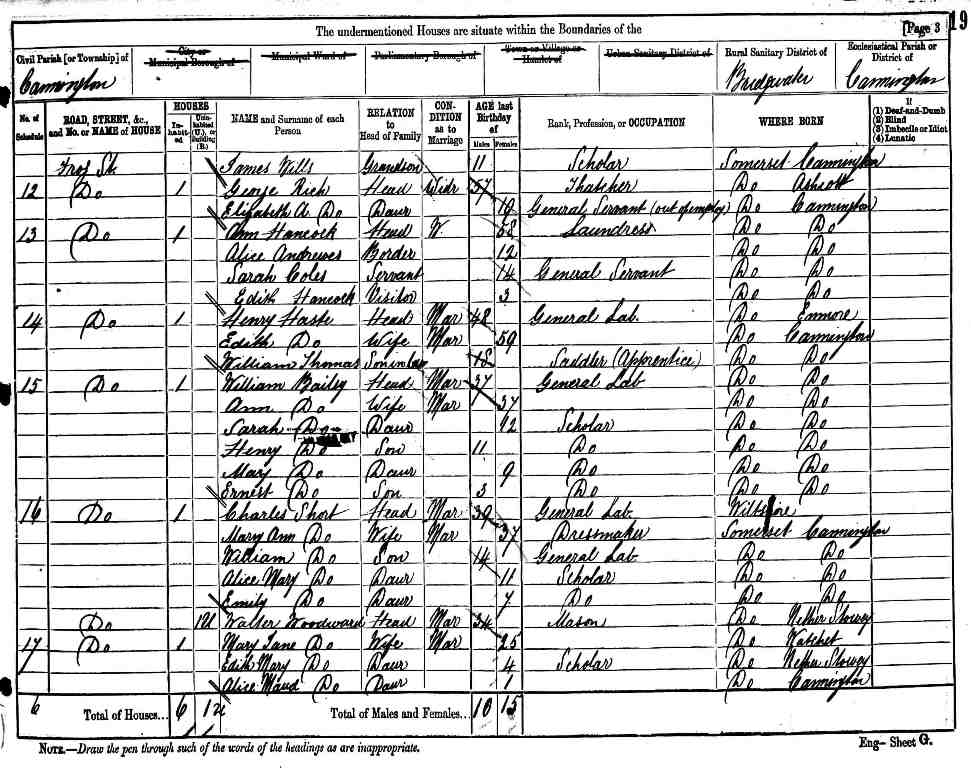 The undermentioned Houses are situate within the Boundaries of the [Page 3 19
Civil Parish [or Township] of City or Municipal Borough of Municipal Ward of Parliamentary Borough of Town or Village or Hamlet of Urban Sanitary District of Rural Sanitary District of Ecclesiastical Parish or District of
Cannington Bridgwater Cannington
No. of Schedule ROAD, STREET, &c., and No. or NAME of HOUSE HOUSES Inhabited Uninhabited (U.), or Building (B.) NAME and Surname of each Person RELATION to Head of Family CONDITION as to Marriage AGE last Birthday of Males Females Rank, Profession, or OCCUPATION WHERE BORN If (1) Deaf-and-Dumb (2) Blind (3) Imbecile or Idiot (4) Lunatic
St. James Wills Grandson 11 Scholar Somerset Cannington
12 Do 1 George Rich Head Widr 57 Thatcher Do Ashcott
Elizabeth A Do Daur 19 General Servant (out of employ) Do Cannington
13 Do 1 Ann Hancock Head W. 58 Laundress Do Do
Alice Andrewes Border 12 Do Do
Sarah Coles Servant 14 General Servant Do Do
Edith Hancock Visitor 3 Do Do
14 Do 1 Henry Haste Head Mar 48 General Lab. Do Enmore
Edith Do Wife Mar 59 Do Cannington
William Thomas Soninlaw 18 Saddler (Apprentice) Do Do
15 Do 1 William Baily Head Mar 37 General Lab Do Do
Ann Do Wife Mar 37 Do Do
Sarah Do Daur 12 Scholar Do Do
Henry Do Son 11 Do Do Do
Mary Do Daur 9 Do Do Do
Ernest Do Son 3 Do Do Do
16 Do 1 Charles Short Head Mar 39 General Lab. Wiltshire
Mary Ann Do Wife Mar 37 Dressmaker Somerset Cannington
William Do Son 14 General Lab Do Do
Alice Mary Do Daur 11 Scholar Do Do
Emily Do Daur 7 Do Do Do
Do 1U Walter Woodward Head Mar 34 Mason Do Nether Stowey
17 Do 1 Mary Jane Do Wife Mar 25 Do Watchet
Edith Mary Do Daur 4 Scholar Do Nether Stowey
Alice Maud Do Daur 1 Do Cannington
6 Total of Houses... 6 1U Total of Males and Females... 10 15
NOTE.—Draw the pen through such of the words of the headings as are inappropriate. Eng— Sheet G.